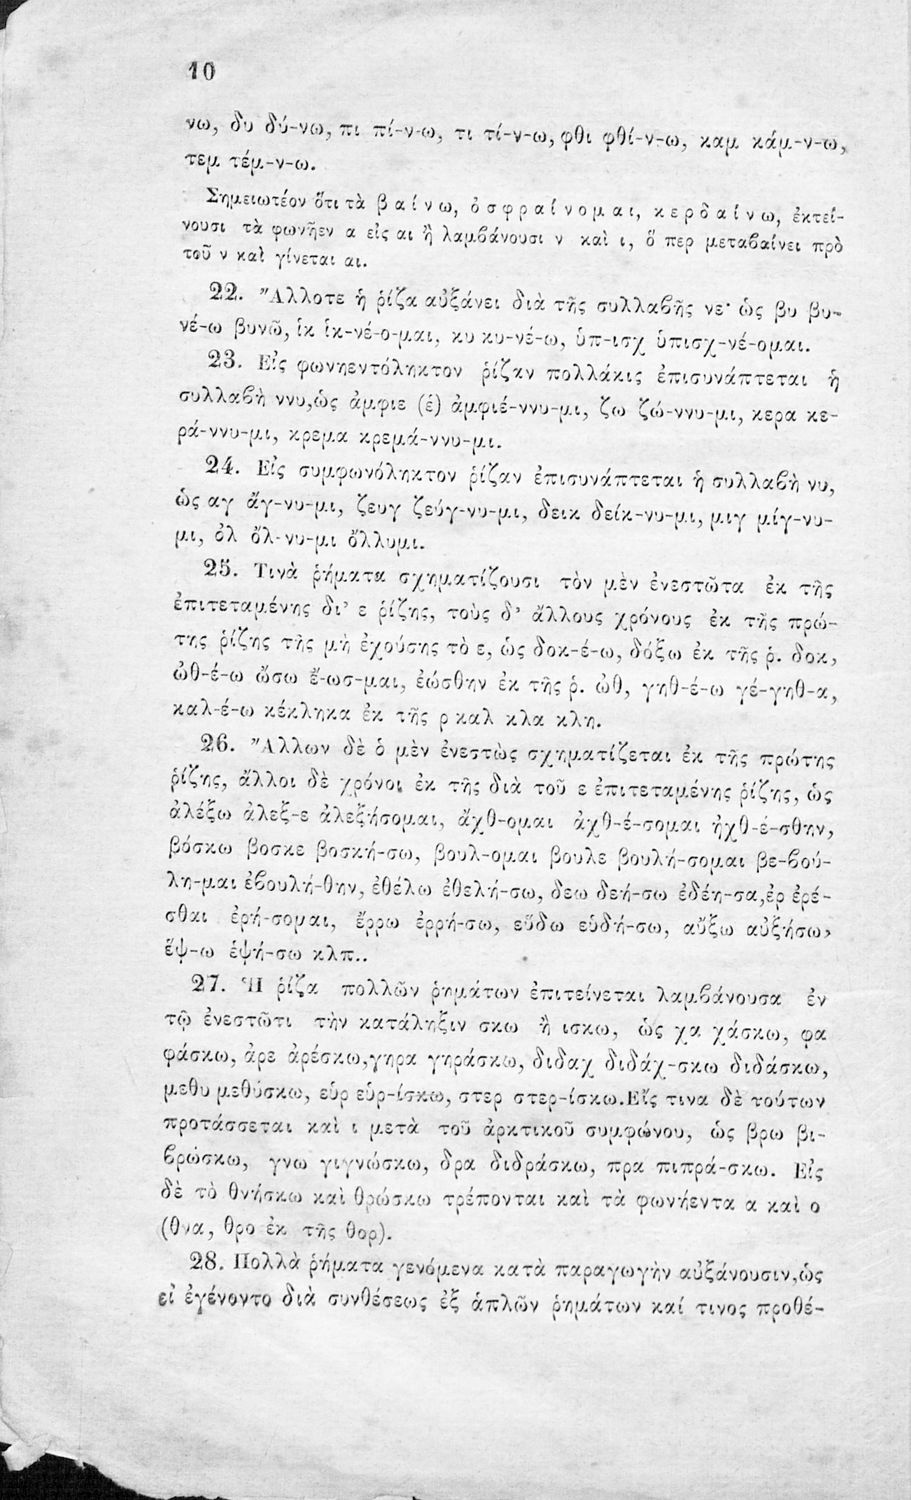 10
νω, δυ δύ-νω, πι πί-ν-ω, τι τί-ν-ω, φθι φθί-ν-ω, καμ κάμ-ν-ω,
τεμ τέμ-ν-ω.
Σημειωτέον ὅτι τὰ βαίνω, ὀσφραίνομαι, κερδαίνω, ἐκτεί-
νουσι τὰ φωνῆεν α εἰς αι ἢ λαμβάνουσι ν καὶ ι, ὅ περ μεταβαίνει πρὸ
τοῦ ν καὶ γίνεται αι.
22. Ἄλλοτε ἡ ῥίζα αὐξάνει διὰ τῆς συλλαβῆς νε· ὡς βυ βυ-
νέ-ω βυνῶ, ἱκ ἱκ-νέ-ο-μαι, κυ κυ-νέ-ω, ὑπ-ισχ ὑπισχ-νέ-ομαι.
23. Εἰς φωνηεντόληκτον ῥίζαν πολλάκις ἐπισυνάπτεται ἡ
συλλαβὴ ννυ,ὡς ἀμφιε (ἑ) ἀμφιέ-ννυ-μι, ζω ζώ-ννυ-μι, κερα κε-
ρά-ννυ-μι, κρεμα κρεμά-ννυ-μι.
24. Εἰς συμφωνόληκτον ῥίζαν ἐπισυνάπτεται ἡ συλλαβὴ νυ,
ὡς αγ ἄγ-νυ-μι, ζευγ ζεύγ-νυ-μι, δεικ δείκ-νυ-μι, μιγ μίγ-νυ-
μι, ὀλ ὄλ-νυ-μι ὄλλυμι.
25. Τινὰ ῥήματα σχηματίζουσι τὸν μὲν ἐνεστῶτα ἐκ τῆς
ἐπιτεταμένης δι' ε ῥίζης, τοὺς δ' ἄλλους χρόνους ἐκ τῆς πρώ-
της ῥίζης τῆς μὴ ἐχούσης τὸ ε, ὡς δοκ-έ-ω, δόξω ἐκ τῆς ῥ. δοκ,
ὠθ-έ-ω ὤσω ἔ-ωσ-μαι, ἐώσθην ἐκ τῆς ῥ. ὠθ, γηθ-έ-ω γέ-γηθ-α,
καλ-έ-ω κέκληκα ἐκ τῆς ρ καλ κλα κλη.
26. Ἄλλων δὲ ὁ μὲν ἐνεστὼς σχηματίζεται ἐκ τῆς πρώτης
ῥίζης, ἄλλοι δὲ χρόνοι ἐκ τῆς διὰ τοῦ ε ἐπιτεταμένης ῥίζης, ὡς
ἀλέξω ἀλεξ-ε ἀλεξήσομαι, ἄχθ-ομαι ἀχθ-έ-σομαι ἠχθ-έ-σθην,
βόσκω βοσκε βοσκή-σω, βουλ-ομαι βουλε βουλή-σομαι βε-βού-
λη-μαι ἐβουλή-θην, ἐθέλω ἐθελή-σω, δεω δεή-σω ἐδέη-σα,ἐρ ἐρέ-
σθαι ἐρή-σομαι, ἔρρω ἐρρή-σω, εὕδω εὑδή-σω, αὔξω αὐξήσω,
ἕψ-ω ἑψή-σω κλπ..
27. Ἡ ῥίζα πολλῶν ῥημάτων ἐπιτείνεται λαμβάνουσα ἐν
τῷ ἐνεστῶτι τὴν κατάληξιν σκω ἢ ισκω, ὡς χα χάσκω, φα
φάσκω, ἀρε ἀρέσκω,γηρα γηράσκω, διδαχ διδάχ-σκω διδάσκω,
μεθυ μεθύσκω, εὑρ εὑρ-ίσκω, στερ στερ-ίσκω.Εἴς τινα δὲ τούτων
προτάσσεται καὶ ι μετὰ τοῦ ἀρκτικοῦ συμφώνου, ὡς βρω βι-
βρώσκω, γνω γιγνώσκω, δρα διδράσκω, πρα πιπρά-σκω. Εἰς
δὲ τὸ θνήσκω καὶ θρώσκω τρέπονται καὶ τὰ φωνήεντα α καὶ ο
(θνα, θρο ἐκ τῆς θορ).
28. Πολλὰ ῥήματα γενόμενα κατὰ παραγωγὴν αὐξάνουσιν,ὡς
εἰ ἐγένοντο διὰ συνθέσεως ἐξ ἁπλῶν ῥημάτων καί τινος προθέ-